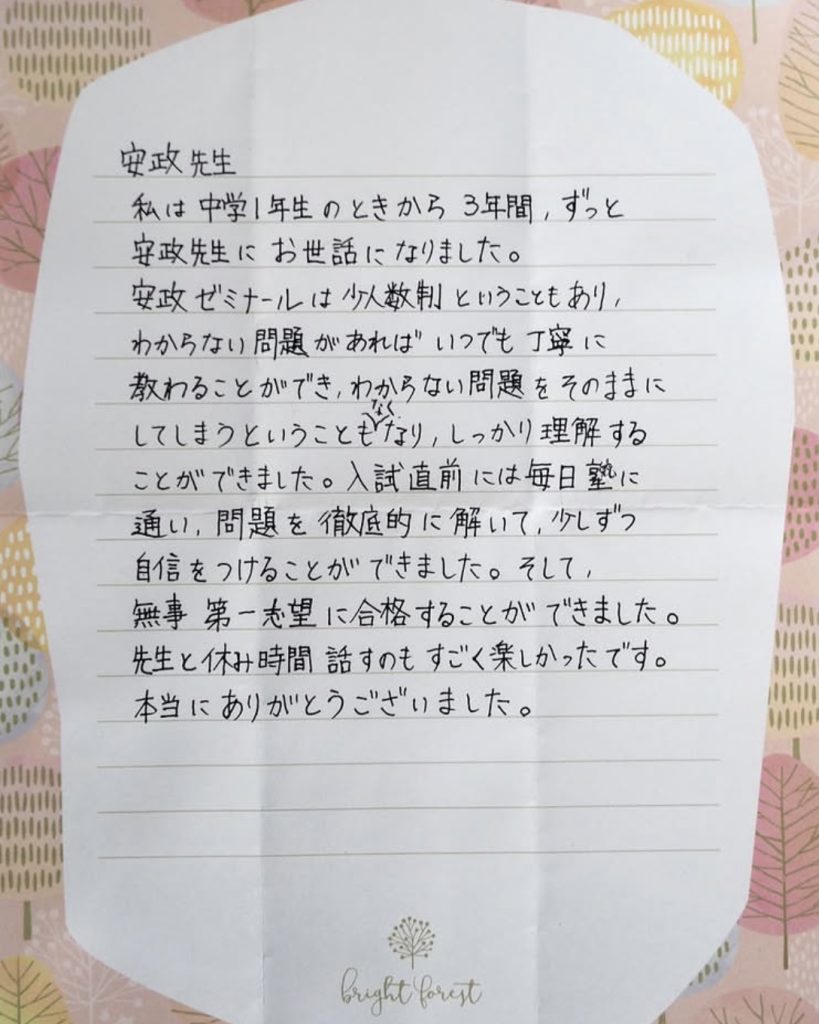 安政先生
私は中学1年生のときから3年間,ずっと
安政先生にお世話になりました。
安政ゼミナールは少人数制ということもあり,
わからない問題があればいつでも丁寧に
教わることができ,わからない問題をそのままに
してしまうということもなくなり,しっかり理解する
ことができました。入試直前には毎日塾に
通い,問題を徹底的に解いて,少しずつ
自信をつけることができました。そして,
無事第一志望に合格することができました。
先生と休み時間話すのもすごく楽しかったです。
本当にありがとうございました。
bright forest